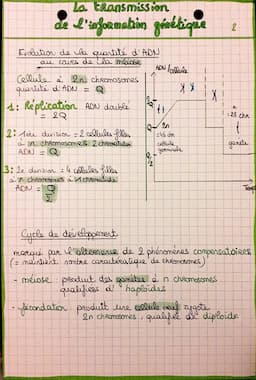 La transmission
de l'information génétique
2
Evolution de la quantité d'ADN
au cours de la méiose
Cellule à 2n chromosomes
quantité d'ADN = Q
1: Réplication ADN doublé
= 2Q
2: 1ère division = 2 cellules filles
à n chromosomes 2 chromatides
ADN = Q
3: 2e division = 4 cellules filles
à n chromosomes 1 chromatide
ADN = Q/2
ADN /cellule
2Q
Q
Q/2
2n
cellule
germinale
gamète
Temps
Cycle de développement
marqué par l'alternance de 2 phénomènes compensatoires
(= maintient nombre caractéristique de chromosomes)
- méiose produit des gamètes à n chromosomes
qualifiés d'haploïdes
- fécondation produit une cellule oeuf zygote
2n chromosomes : qualifié de diploïde